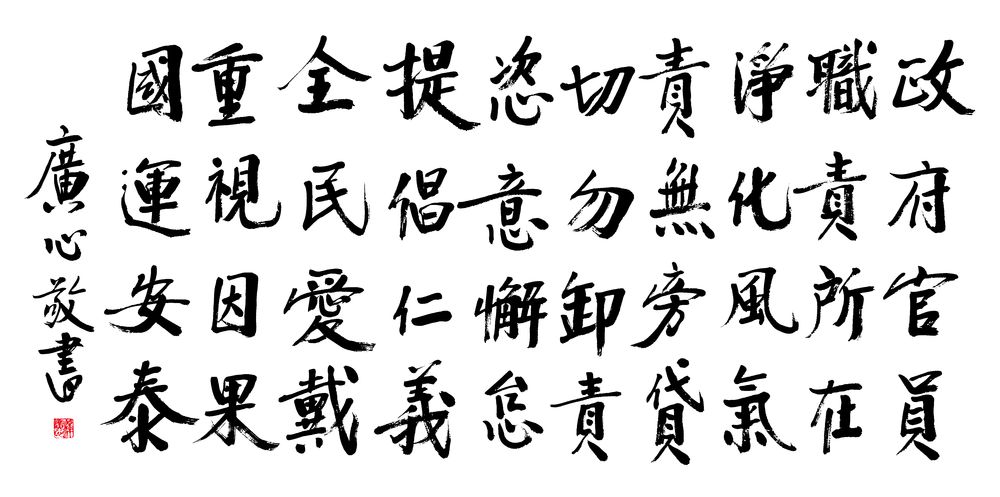 政府官員
職責所在
淨化風氣
責無旁貸
切勿卸責
恣意懈怠
提倡仁義
全民愛戴
重視因果
國運安泰
廣心敬書